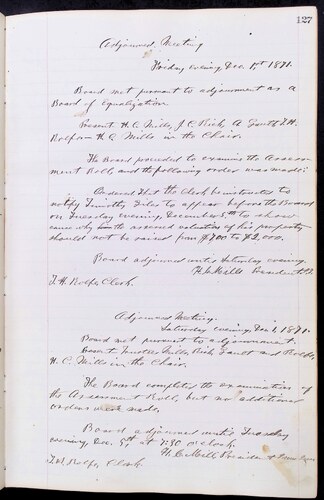 127
Adjourned Meeting
Friday evening Dec. 1st 1871.
Board met pursuant to adjournment as a
Board of Equalization.
Present H. C. Mills, J. C. Rich, A. Gandt T. H.
Rolfe— H. C. Mills in the Chair.
The Board proceeded to examine the Assess-
ment Roll, and the following order was made:
Ordered that the Clerk be instructed to
notify Timothy to appear before the Board
on Tuesday evening, December 5th to show
cause why the assessed valuation of his property
should not be raised from $700 to $2,000.
Board adjourned until Saturday evening.
H. C. Mills President
T. H. Rolfe, Clerk.
Adjourned Meeting.
Saturday evening, Dec. 1871.
Board met pursuant to adjournment.
Present Trustees Mills, Rich, Gandt and Rolfe,
H. C. Mills in the Chair.
The Board completed the examination of
the Assessment Roll, but no additional
orders made.
Board adjourned until Tuesday
evening, Dec. 5th, at 7:30 o'clock.
H. C. Mills, President
T. H. Rolfe, Clerk.